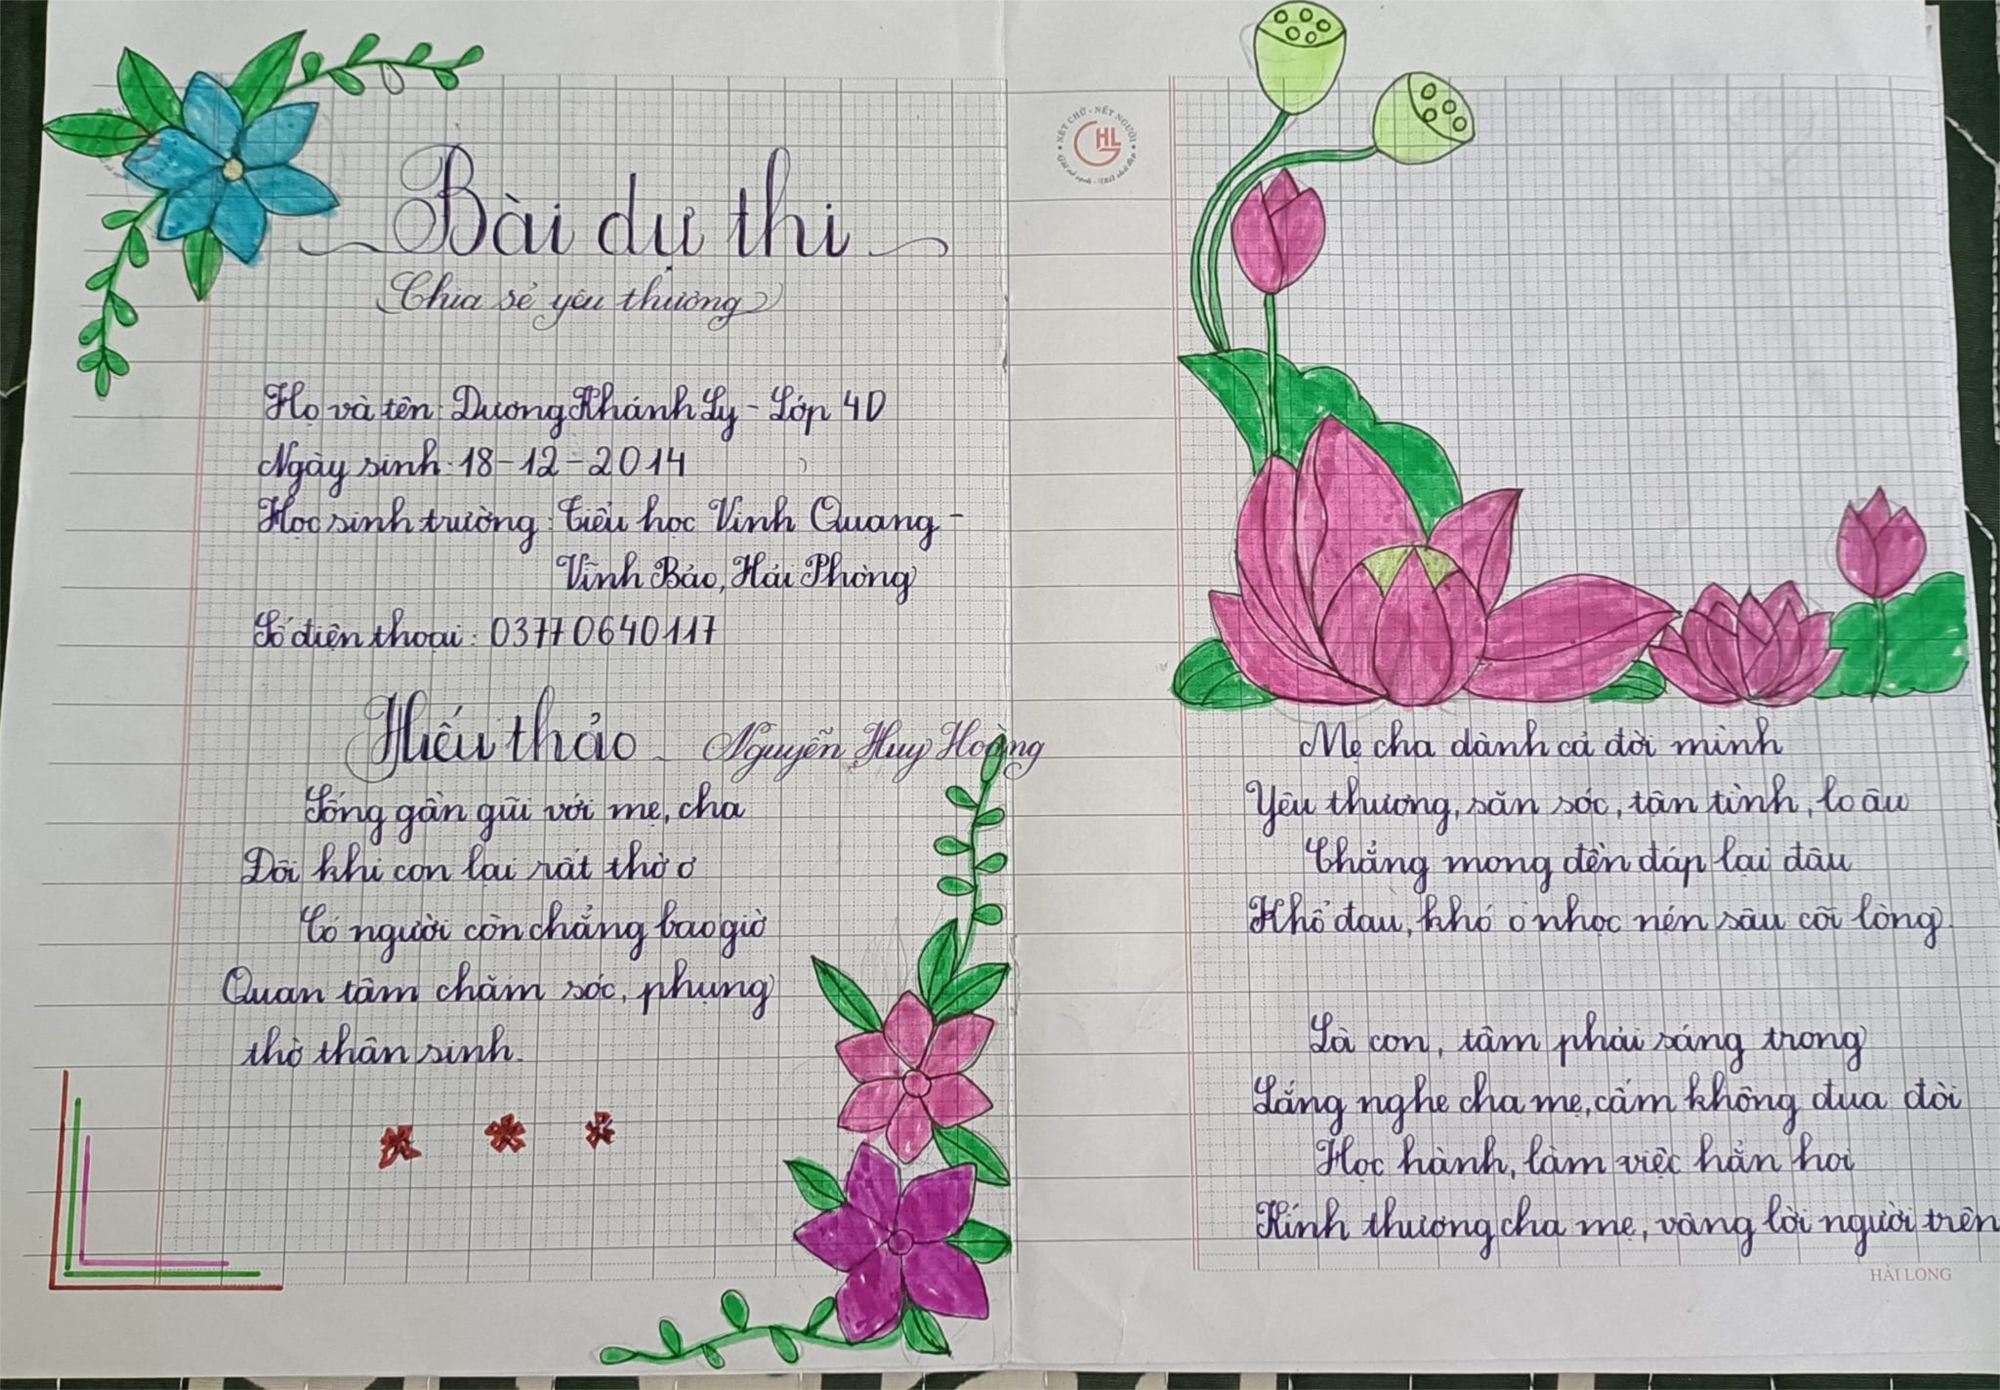 Bài dự thi
Chia sẻ yêu thương
Họ và tên: Dương Khánh Ly - Lớp 4D
Ngày sinh: 18-12-2014
Học sinh trường: Tiểu học Vinh Quang -
Vĩnh Bảo, Hải Phòng
Số điện thoại: 03770640117
Hiếu thảo - Nguyễn Huy Hoàng
Sống gần gũi với mẹ, cha
Đôi khi con lại rất thờ ơ
Có người còn chẳng bao giờ
Quan tâm chăm sóc, phụng
thờ thân sinh.
NÉT CHỮ - NẾT NGƯỜI
HL
Mẹ cha dành cả đời mình
Yêu thương, săn sóc, tận tình, lo âu
Chẳng mong đền đáp lại đâu
Khổ đau, khó nhọc nén sâu cõi lòng.
Là con, tâm phải sáng trong
Lắng nghe cha mẹ, cấm không đua đòi
Học hành, làm việc hẳn hoi
Kính thương cha mẹ, vâng lời người trên
HẢI LONG